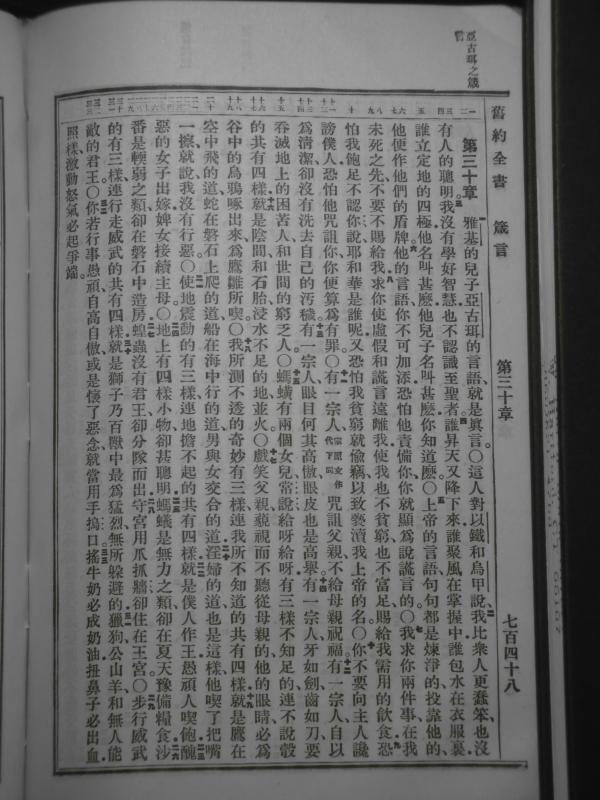 亞古珥之箴言
舊約全書 箴言 第三十章 七百四十八
第三十章 雅基的兒子亞古珥的言語、就是眞言。〇這人對以鐵和烏甲說、我比衆人更蠢笨、也沒
有人的聰明、我沒有學好智慧、也不認識至聖者、誰昇天又降下來、誰聚風在掌握中、誰包水在衣服裏、
誰立定地的四極、他名叫甚麽、他兒子名叫甚麽、你知道麽〇上帝的言語、句句都是煉淨的、投靠他的、
他便作他們的盾牌、他的言語、你不可加添、恐怕他責備你、你就顯爲說謊言的〇我求你兩件事、在我
未死之先、不要不賜給我、求你使虛假和謊言遠離我、使我也不貧窮、也不富足、賜給我需用的飲食、恐
怕我飽足不認你、說耶和華是誰呢、又恐怕我貧窮就偷竊、以致褻瀆我上帝的名〇你不要向主人讒
謗僕人、恐怕他咒詛你、你便算爲有罪〇有一宗人宗原文作代下同咒詛父親、不給母親祝福、有一宗人、自以
爲清潔、卻沒有洗去自己的汚穢、有一宗人、眼目何其高傲、眼皮也是高舉、有一宗人、牙如劍、齒如刀、要
吞滅地上的困苦人、和世間的窮乏人〇螞蟥有兩個女兒、常說給呀給呀、有三樣不知足的、連不說彀
的共有四樣、就是陰間、和石胎、浸水不足的地、並火〇戲笑父親、藐視而不聽從母親的、他的眼睛、必爲
谷中的烏鴉啄出來、爲鷹雛所喫〇我所測不透的奇妙有三樣、連我所不知道的共有四樣、就是鷹在
空中飛的道、蛇在磐石上爬的道、船在海中行的道、男與女交合的道、淫婦的道、也是這樣、他喫了把嘴
一擦、就說、我沒有行惡〇使地震動的有三樣、連地擔不起的共有四樣、就是僕人作王、愚頑人喫飽、醜
惡的女子出嫁、婢女接續主母〇地上有四樣小物、卻甚聰明、螞蟻是無力之類、卻在夏天豫備糧食、沙
番是輭弱之類、卻在磐石中造房、蝗蟲沒有君王、卻分隊而出、守宮用爪抓牆、卻住在王宮〇步行威武
的有三樣、連行走威武的共有四樣、就是獅子乃百獸中最爲猛烈、無所躱避的、獵狗、公山羊、和無人能
敵的君王〇你若行事愚頑、自高自傲、或是懷了惡念、就當用手摀口、搖牛奶必成奶油、扭鼻子必出血、
照樣、激動怒氣必起爭端。